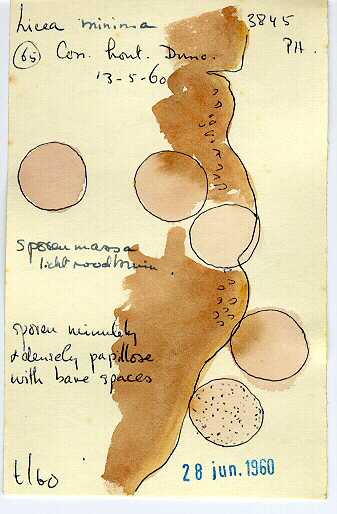 Licea minima
3845
PH.
(65) Con. hout. Dunc.
13-5-60
sporenmassa
licht roodbruin.
sporen minutely
& densely papillose
with bare spaces
t/60
28 jun. 1960